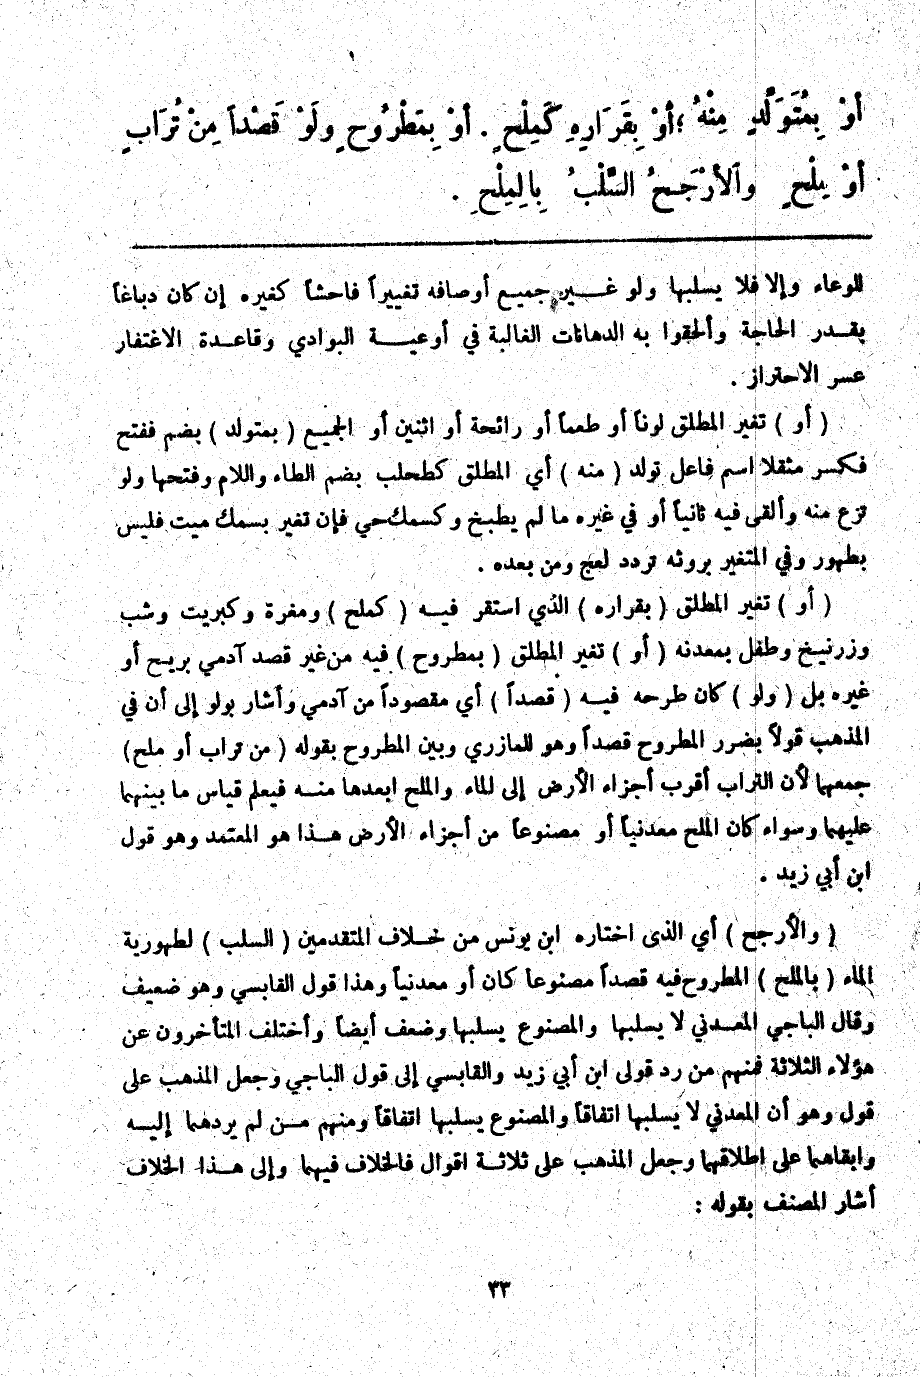 أَوْ بِمُتَوَلِّدٍ مِنْهُ ؛ أَوْ بِقَرَارِهِ كَمِلْحٍ . أَوْ بِمَطْرُوحٍ وَلَوْ قَصْداً مِنْ تُرَابٍ
أَوْ مِلْحٍ وَالْأَرْجَحُ السَّلْبُ بِالْمِلْحِ .
للوعاء وإلا فلا يسلبها ولو غـــير جميع أوصافه تغييراً فاحشاً كغيره إن كان دباغاً
بقـدر الحاجة وألحقوا به الدهانات الغالبة في أوعيــة البوادي وقاعـدة الاغتفار
عسر الاحتراز .
( أو ) تغير المطلق لوناً أو طعماً أو رائحة أو اثنين أو الجميـع ( بمتولد ) بضم ففتح
فـكسر مثقلا اسم فاعل تولد ( منه ) أي المطلق كطحلب بضم الطاء واللام وفتحها ولو
نزع منه وألقى فيه ثانياً أو في غيره ما لم يطبخ وكسمك حي فإن تغير بسمك ميت فليس
بطهور وفي المتغير بروثه تردد لعج ومن بعده .
( أو ) تغير المطلق ( بقراره ) الذي استقر فيــه ( كملح ) ومغرة وكبريت وشب
وزرنيـخ وطفل بمعدنه ( أو ) تغير المطلق ( بمطروح ) فيه من غير قصد آدمي بريـح أو
غيره بل ( ولو ) كان طرحه فيــه ( قصداً ) أي مقصوداً من آدمي وأشار بولو إلى أن في
المذهب قولاً بضرر المطروح قصداً وهو للمازري وبين المطروح بقوله ( من تراب أو ملح )
جمعهما لأن التراب أقرب أجزاء الأرض إلى الماء والملح ابعدها منــه فيعلم قياس ما بينهما
عليهما وسواء كان الملح معدنياً أو مصنوعاً من أجزاء الأرض هــذا هو المعتمد وهو قول
ابن أبي زيد .
( والأرجح ) أي الذى اختاره ابن يونس من خــلاف المتقدمين ( السلب ) لطهورية
الماء ( بالملح ) المطروح فيه قصداً مصنوعا كان أو معدنياً وهذا قول القابسي وهو ضعيف
وقال الباجي المعـدني لا يسلبها والمصنوع يسلبها وضعف أيضاً وأختلف المتأخرون عن
هؤلاء الثلاثة فمنهم من رد قولى ابن أبي زيد والقابسي إلى قول الباجي وجعل المذهب على
قول وهو أن المعدني لا يسلبها اتفاقاً والمصنوع يسلبها اتفاقاً ومنهم مـن لم يردهما إليــه
وابقاهما على اطلاقهما وجعل المذهب على ثلاثــة اقوال فالخلاف فيهما وإلى هــذا الخلاف
أشار المصنف بقوله :
٣٣